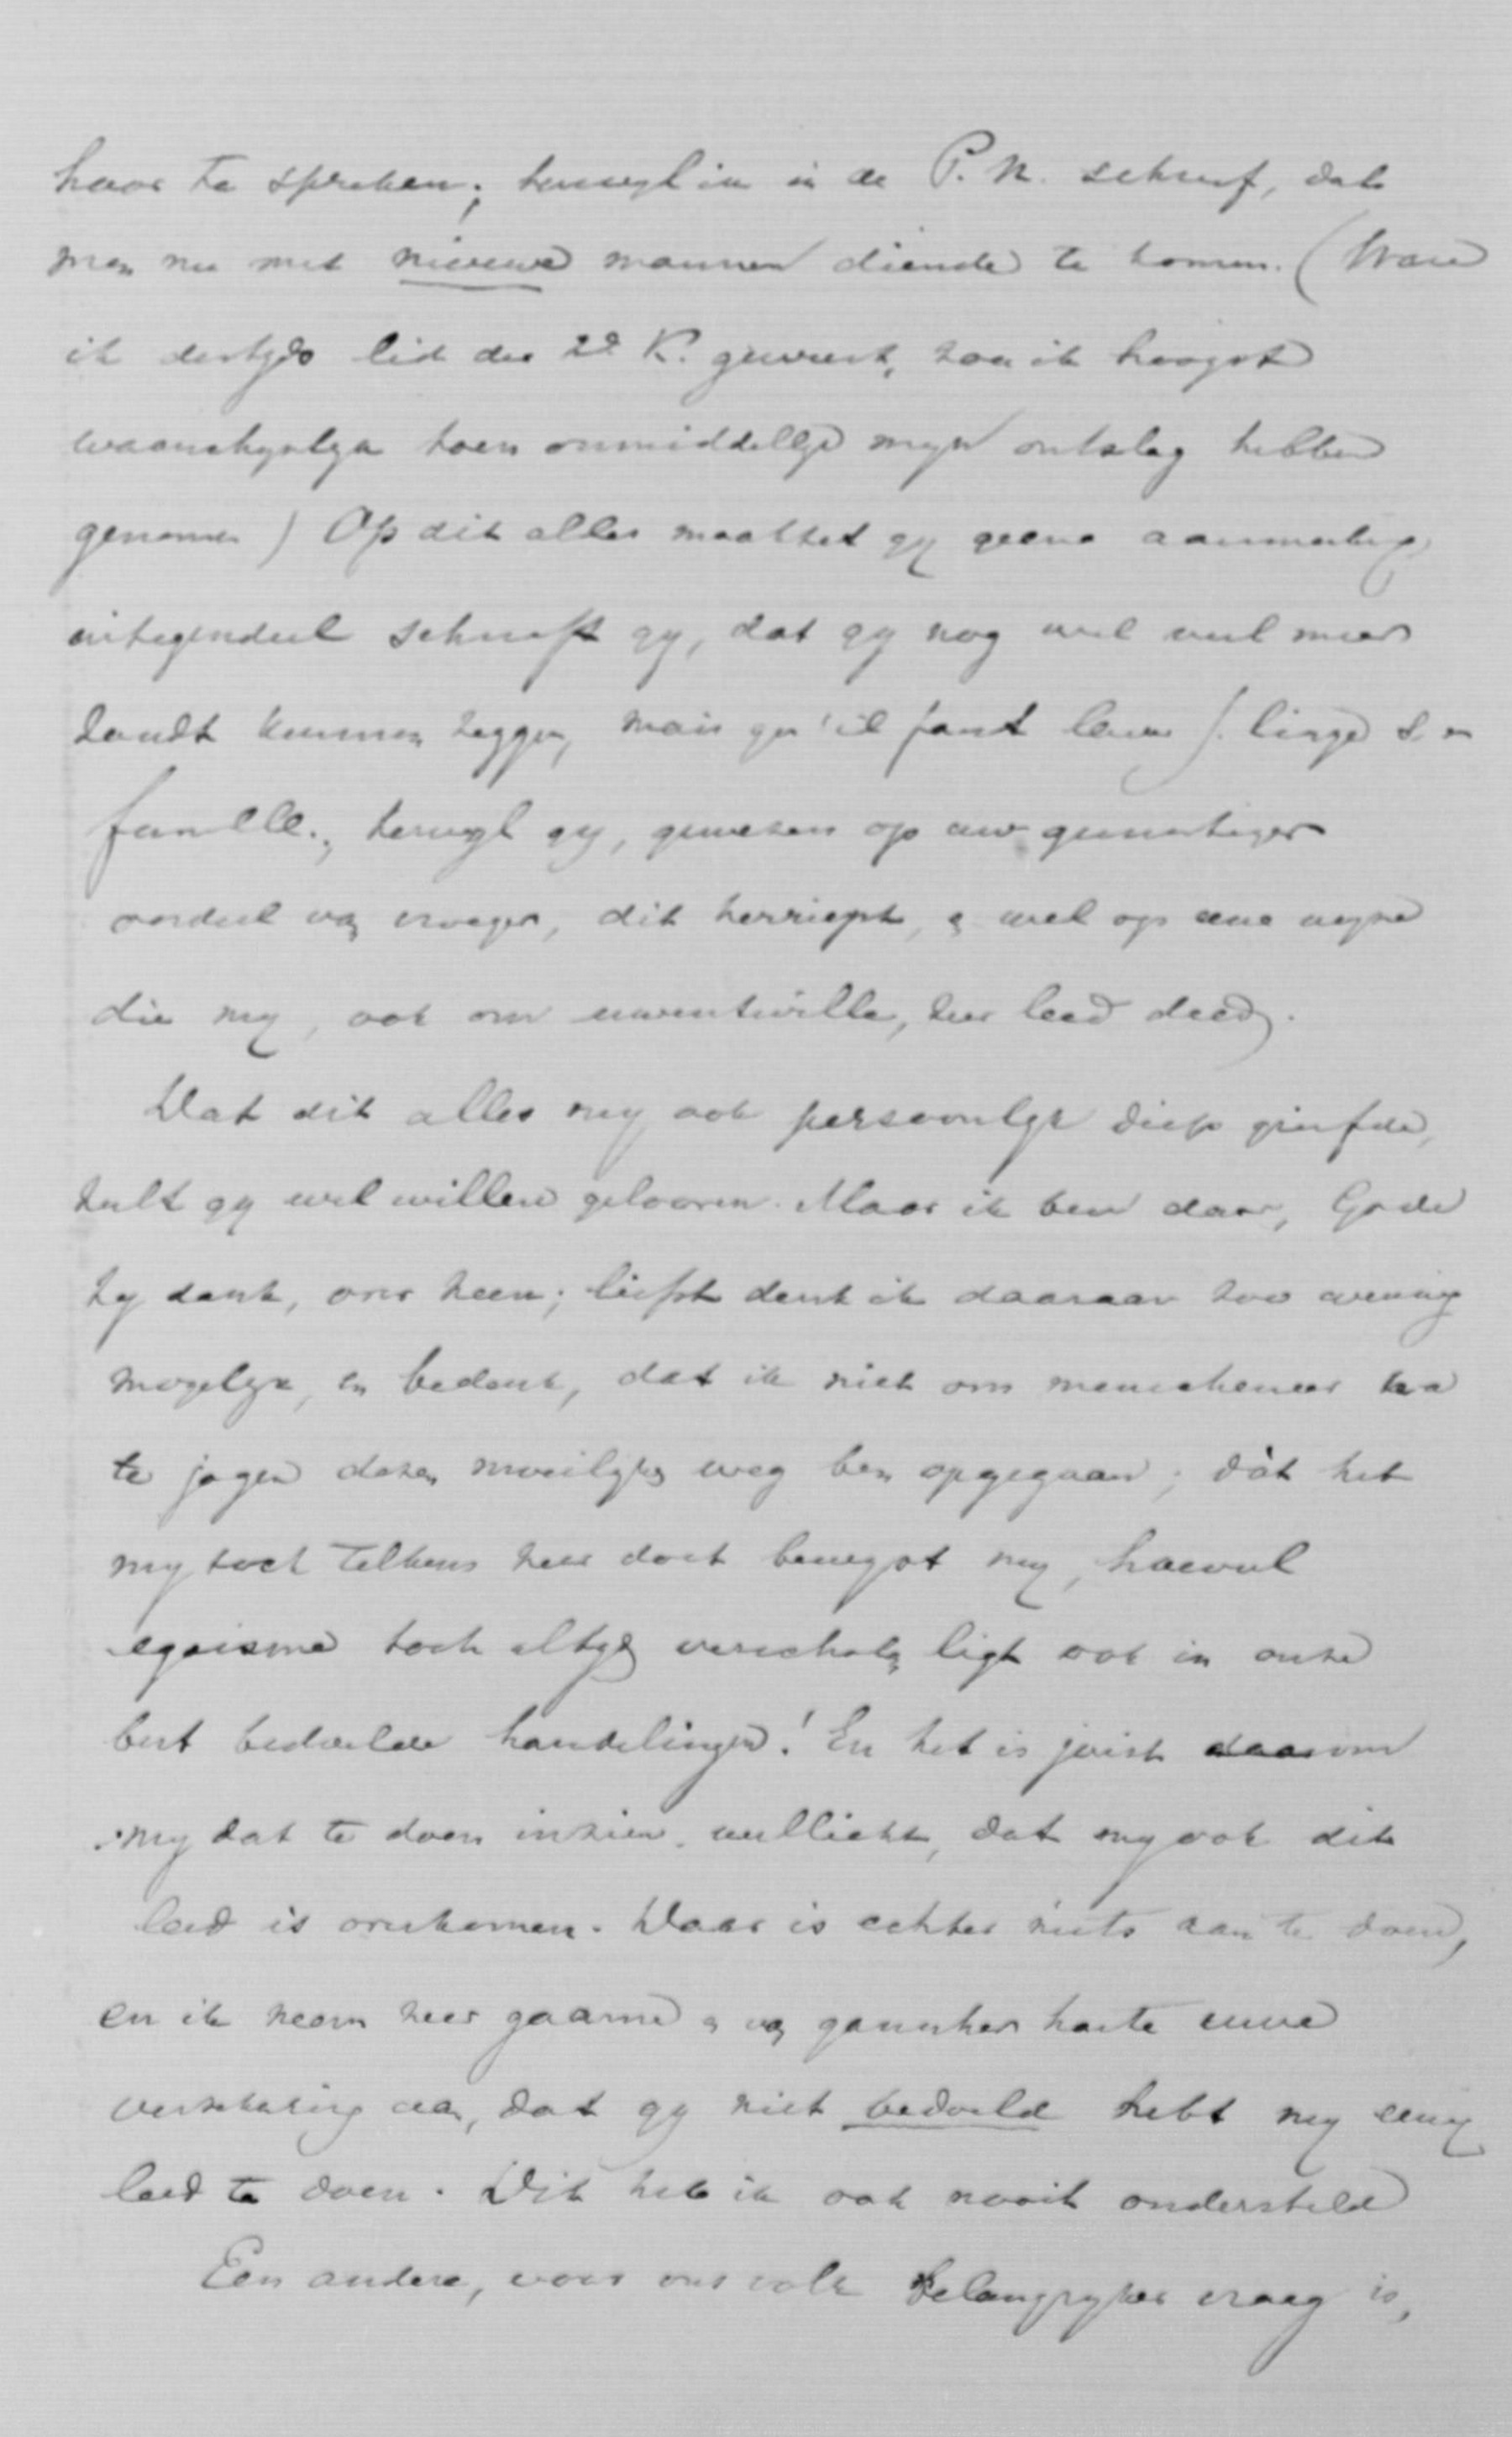 haar te spreken; terwyl in in de P.N. schreef, dat
men nu met nieuwe mannen diende te komen. (Ware
ik destyds lid der 2e K. geweest, zou ik hoogst
waarschynlyk toen onmiddellyk myn ontslag hebben
genomen) Op dit alles maaktet gy geene aanmerking,
integendeel schreeft gy, dat gy nog wel veel meer
zoudt kunnen zeggen, mais qu'il faut laver s. linge s en
famille; terwyl gy, gewezen op uw gunstiger
oordeel van vroeger, dit herriept, en wel op eene wyze
die my, ook om uwentwille, zeer leed deed.
Dat dit alles my ook persoonlyk diep griefde,
zult gy wel willen gelooven. Maar ik ben daar, Gode
zy dank, over heen; liefst denk ik daaraan zoo weinig
mogelyk, en bedenk, dat ik niet om menscheneer na
te jagen dezen moeilyken weg ben opgegaan; dàt het
my toch telkens zeer doet bewyst my, hoeveel
egoisme toch altyd verscholen ligt ook in onze
best bedoelde handelingen! En het is juist daarom
my dat te doen inzien wellicht, dat my ook dit
leed is overkomen. Daar is echter niets aan te doen,
en ik neem zeer gaarne en van ganscher harte uwe
verzekering aan, dat gy niet bedoeld hebt my eenig
leed te doen. Dit heb ik ook nooit ondersteld
Een andere, voor ons volk belangryker vraag is,